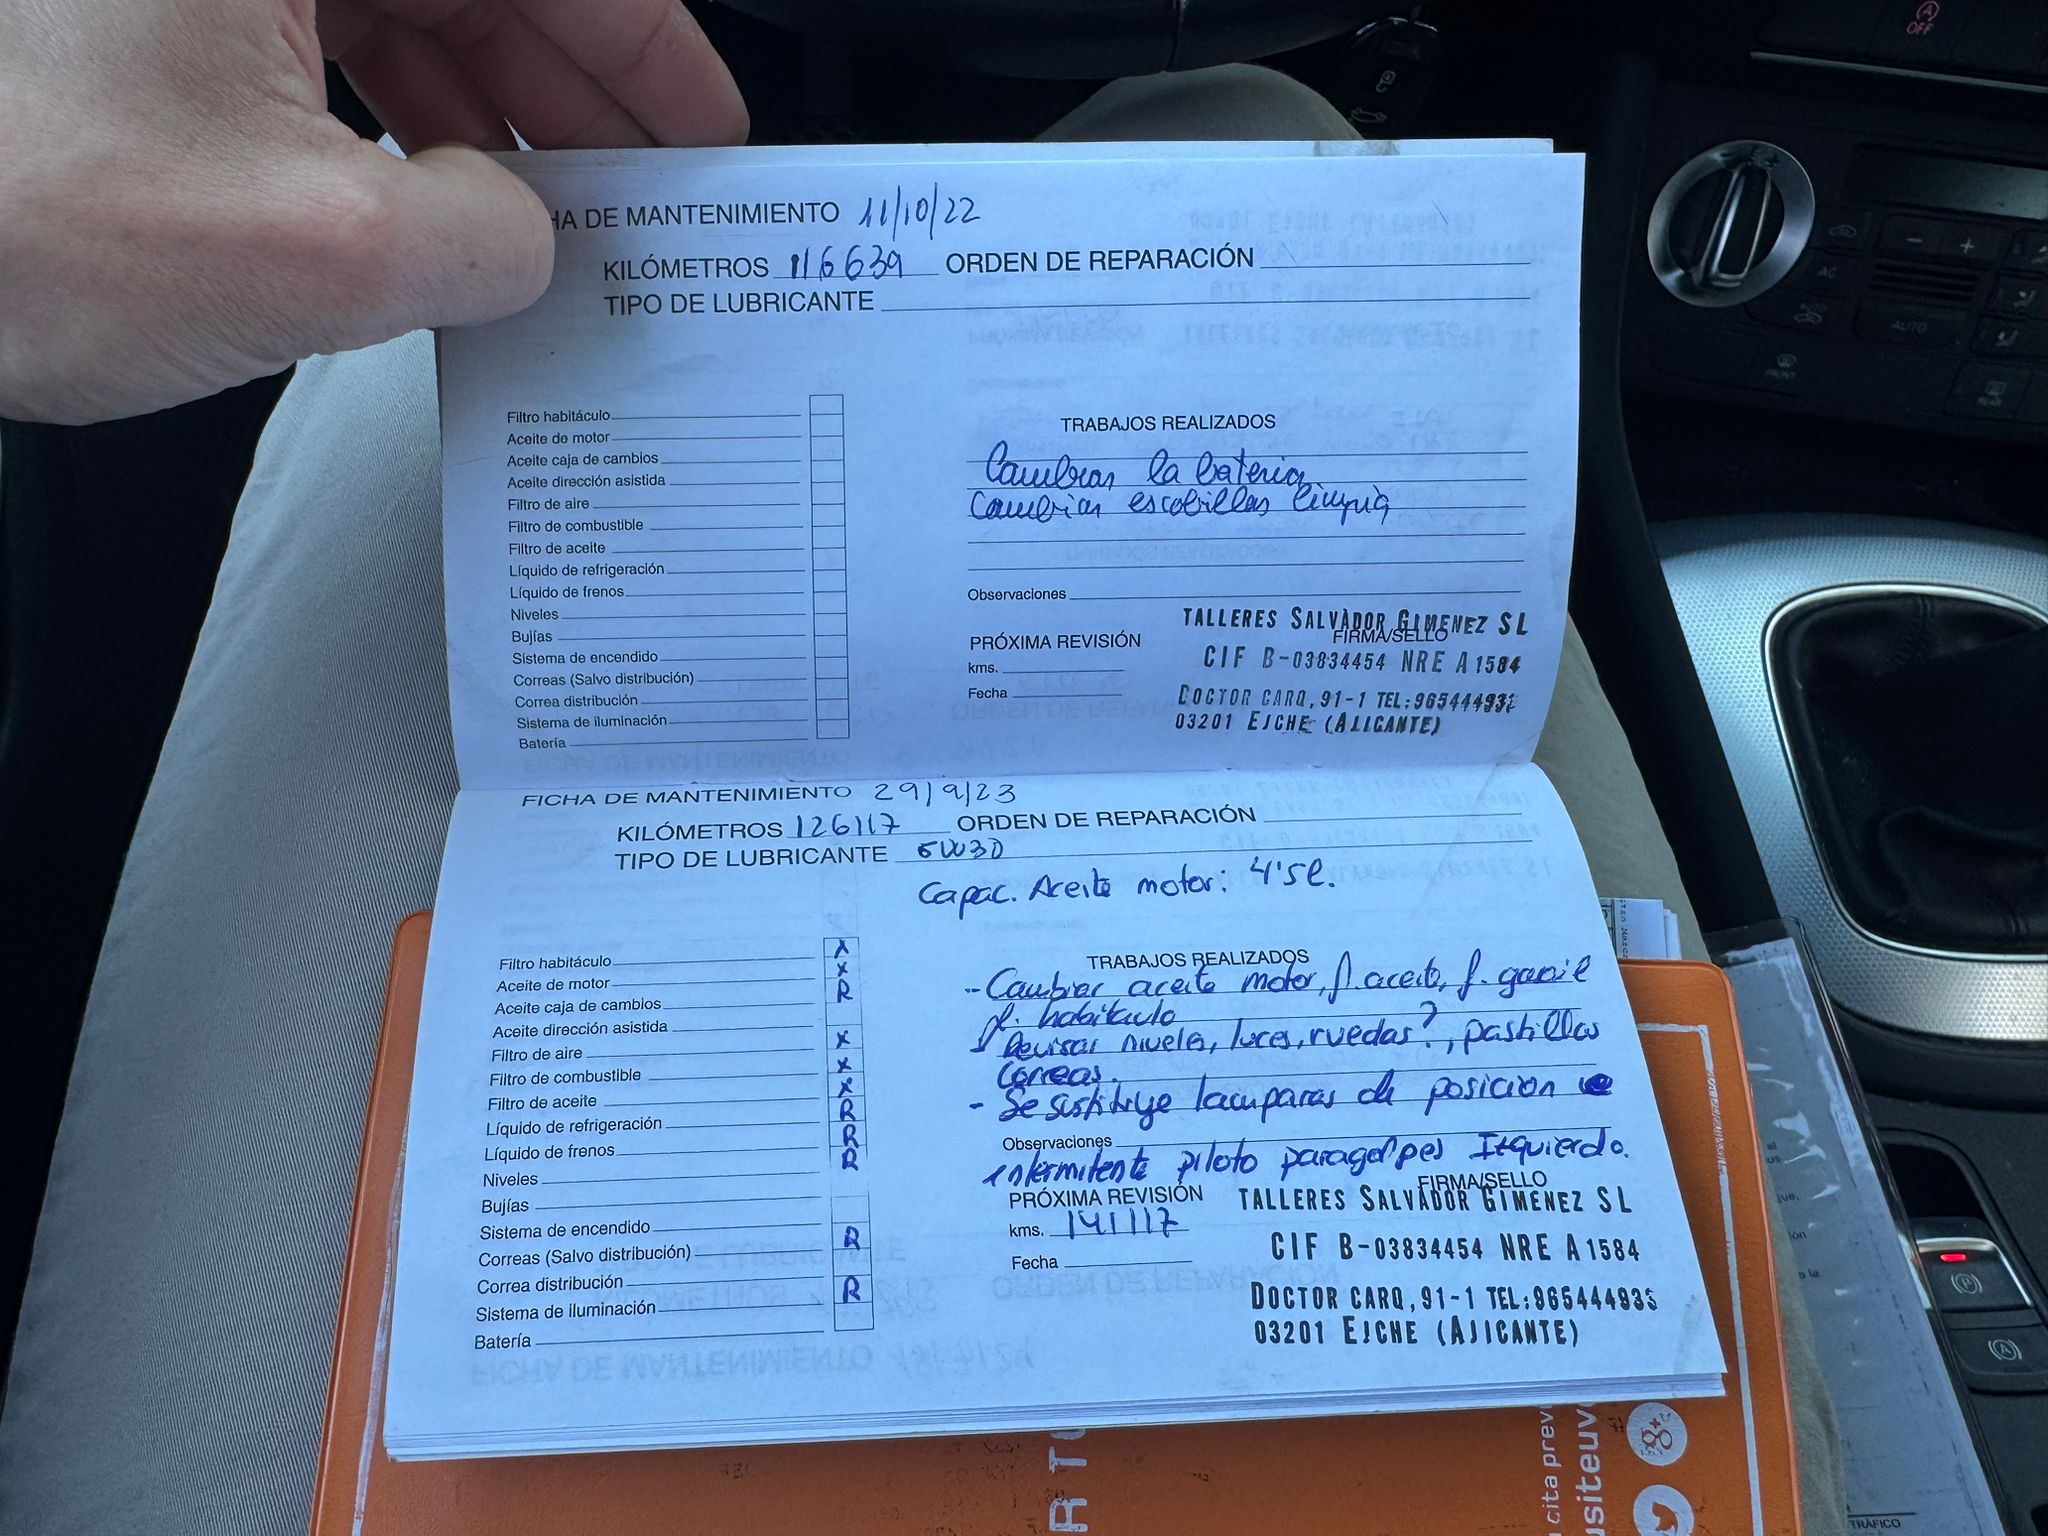 HA DE MANTENIMIENTO 11/10/22
KILÓMETROS 116639 ORDEN DE REPARACIÓN
TIPO DE LUBRICANTE
Filtro habitáculo
Aceite de motor
Aceite caja de cambios
Aceite dirección asistida
Filtro de aire
Filtro de combustible
Filtro de aceite
Líquido de refrigeración
Líquido de frenos
Niveles
Bujías
Sistema de encendido
Correas (Salvo distribución)
Correa distribución
Sistema de iluminación
Batería
TRABAJOS REALIZADOS
Cambiar la bateria
Cambiar escobillas limpia
Observaciones
PRÓXIMA REVISIÓN
kms.
Fecha
FIRMA/SELLO
TALLERES SALVADOR GIMENEZ SL
CIF B-03834454 NRE A 1584
DOCTOR CARO, 91-1 TEL:965444933
03201 ELCHE (ALICANTE)
FICHA DE MANTENIMIENTO 29/9/23
KILÓMETROS 126117 ORDEN DE REPARACIÓN
TIPO DE LUBRICANTE 5W30
Capac. Aceite motor: 4'5l.
Filtro habitáculo X
Aceite de motor X
Aceite caja de cambios R
Aceite dirección asistida
Filtro de aire X
Filtro de combustible X
Filtro de aceite X
Líquido de refrigeración R
Líquido de frenos R
Niveles R
Bujías
Sistema de encendido
Correas (Salvo distribución) R
Correa distribución
Sistema de iluminación R
Batería
TRABAJOS REALIZADOS
- Cambiar aceite motor, f. aceite, f. gasoil
f. habitáculo
- Revisar niveles, luces, ruedas?, pastillas
correas.
- Se sustituye lamparas de posicion
Observaciones
intermitente piloto paragolpes Izquierdo.
PRÓXIMA REVISIÓN
kms. 141117
Fecha
FIRMA/SELLO
TALLERES SALVADOR GIMENEZ SL
CIF B-03834454 NRE A 1584
DOCTOR CARO, 91-1 TEL:965444933
03201 ELCHE (ALICANTE)
OFF
AC
AUTO
FRONT
cita prev
usiteuv
R T
TRÁFICO